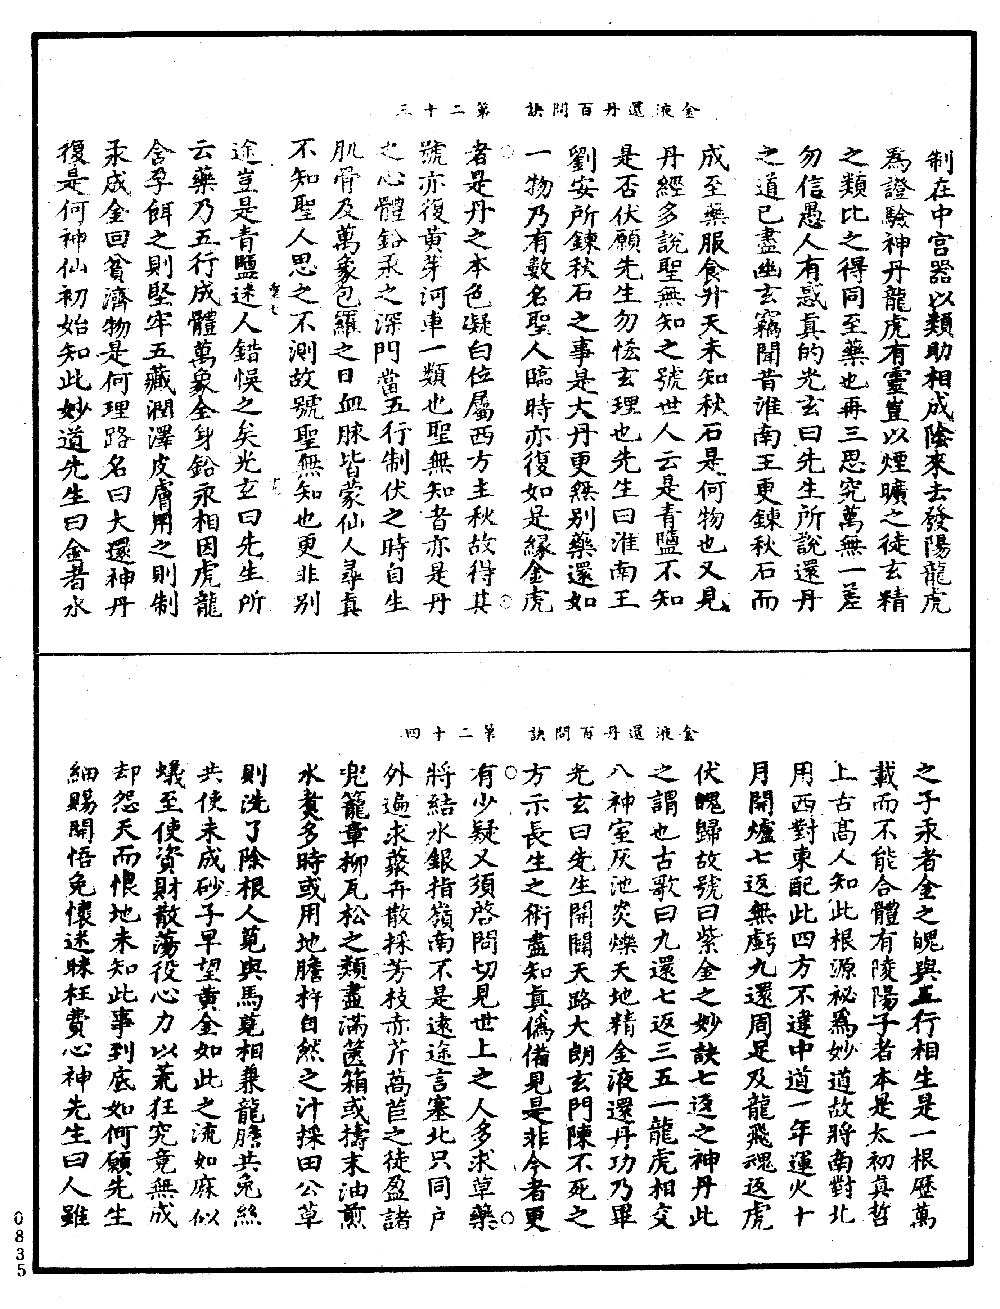 金液還丹百問訣　第二十三
制在中宮器以類助相成陰來去發陽龍虎
為證驗神丹龍虎有靈豈以煙曠之徒玄精
之類比之得同至藥也再三思究萬無一差
勿信愚人有惑真的光玄曰先生所說還丹
之道已盡幽玄竊聞昔淮南王更鍊秋石而
成至藥服食升天未知秋石是何物也又見
丹經多說聖無知之號世人云是青鹽不知
是否伏願先生勿恡玄理也先生曰淮南王
劉安所鍊秋石之事是大丹更無別藥還如
一物乃有數名聖人臨時亦復如是緣金虎
者是丹之本色凝白位屬西方主秋故得其
號亦復黃芽河車一類也聖無知者亦是丹
之心體鉛汞之深門當五行制伏之時自生
肌骨及萬象包羅之日血脉皆蒙仙人尋真
不知聖人思之不測故號聖無知也更非別
途豈是青鹽迷人錯悞之矣光玄曰先生所
云藥乃五行成體萬象全身鉛汞相因虎龍
含孕餌之則堅牢五藏潤澤皮膚用之則制
汞成金回貧濟物是何理路名曰大還神丹
復是何神仙初始知此妙道先生曰金者水
金液還丹百問訣　第二十四
之子汞者金之魄與五行相生是一根歷萬
載而不能合體有陵陽子者本是太初真哲
上古高人知此根源祕為妙道故將南對北
用西對東配此四方不違中道一年運火十
月開爐七返無虧九還周足及龍飛魂返虎
伏魄歸故號曰紫金之妙訣七返之神丹此
之謂也古歌曰九還七返三五一龍虎相交
八神室灰池炎爍天地精金液還丹功乃畢
光玄曰先生開闡天路大朗玄門陳不死之
方示長生之術盡知真偽備見是非今者更
有少疑又須啓問切見世上之人多求草藥
將結水銀指嶺南不是遠途言塞北只同戶
外遍求蘂卉散採芳枝赤芹萵苣之徒盈諸
兜籠章柳瓦松之類盡滿篋箱或擣末油煎
水煑多時或用地膽杵自然之汁採田公草
則洗了除根人莧與馬莧相兼龍膽共兔絲
共使未成砂子早望黃金如此之流如麻似
蟻至使資財散蕩役心力以荒狂究竟無成
却怨天而恨地未知此事到底如何願先生
細賜開悟免懷迷昧枉費心神先生曰人雖
0835